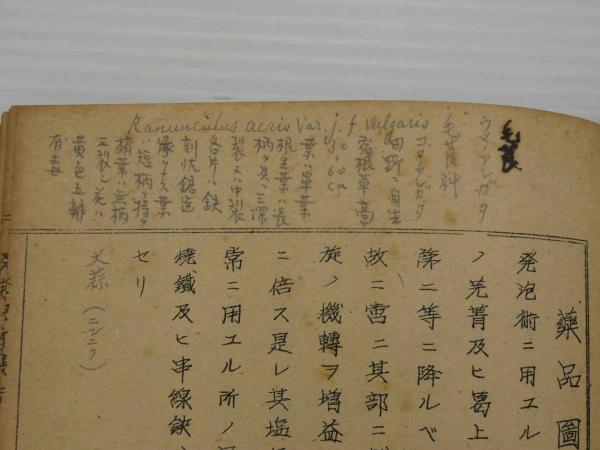 Ranunculus acris Var. j. f. vulgaris
毛茛
ウマノアシガタ
毛茛科
コマノアシガタ
田野ニ自生
宿根草高
30–60cm
葉ハ單葉
根生葉ハ長
柄ヲ具ヘ三深
裂又ハ中裂
各片ハ鉄
刻状鋸歯
縁ナリ又葉
ハ短柄ヲ持ツ
梢葉ハ無柄
三裂シ花ハ
黄色五瓣
有毒
藥品圖
発泡術ニ用ユル
ノ芫菁及ヒ葛上
第二等ニ降ルベ
故ニ啻ニ其部ニ
旋ノ機轉ヲ増益
ニ倍ス是レ其塩
常ニ用エル所ノ
焼鐵及ヒ串線鋏
セリ
大蒜（ニンニク）